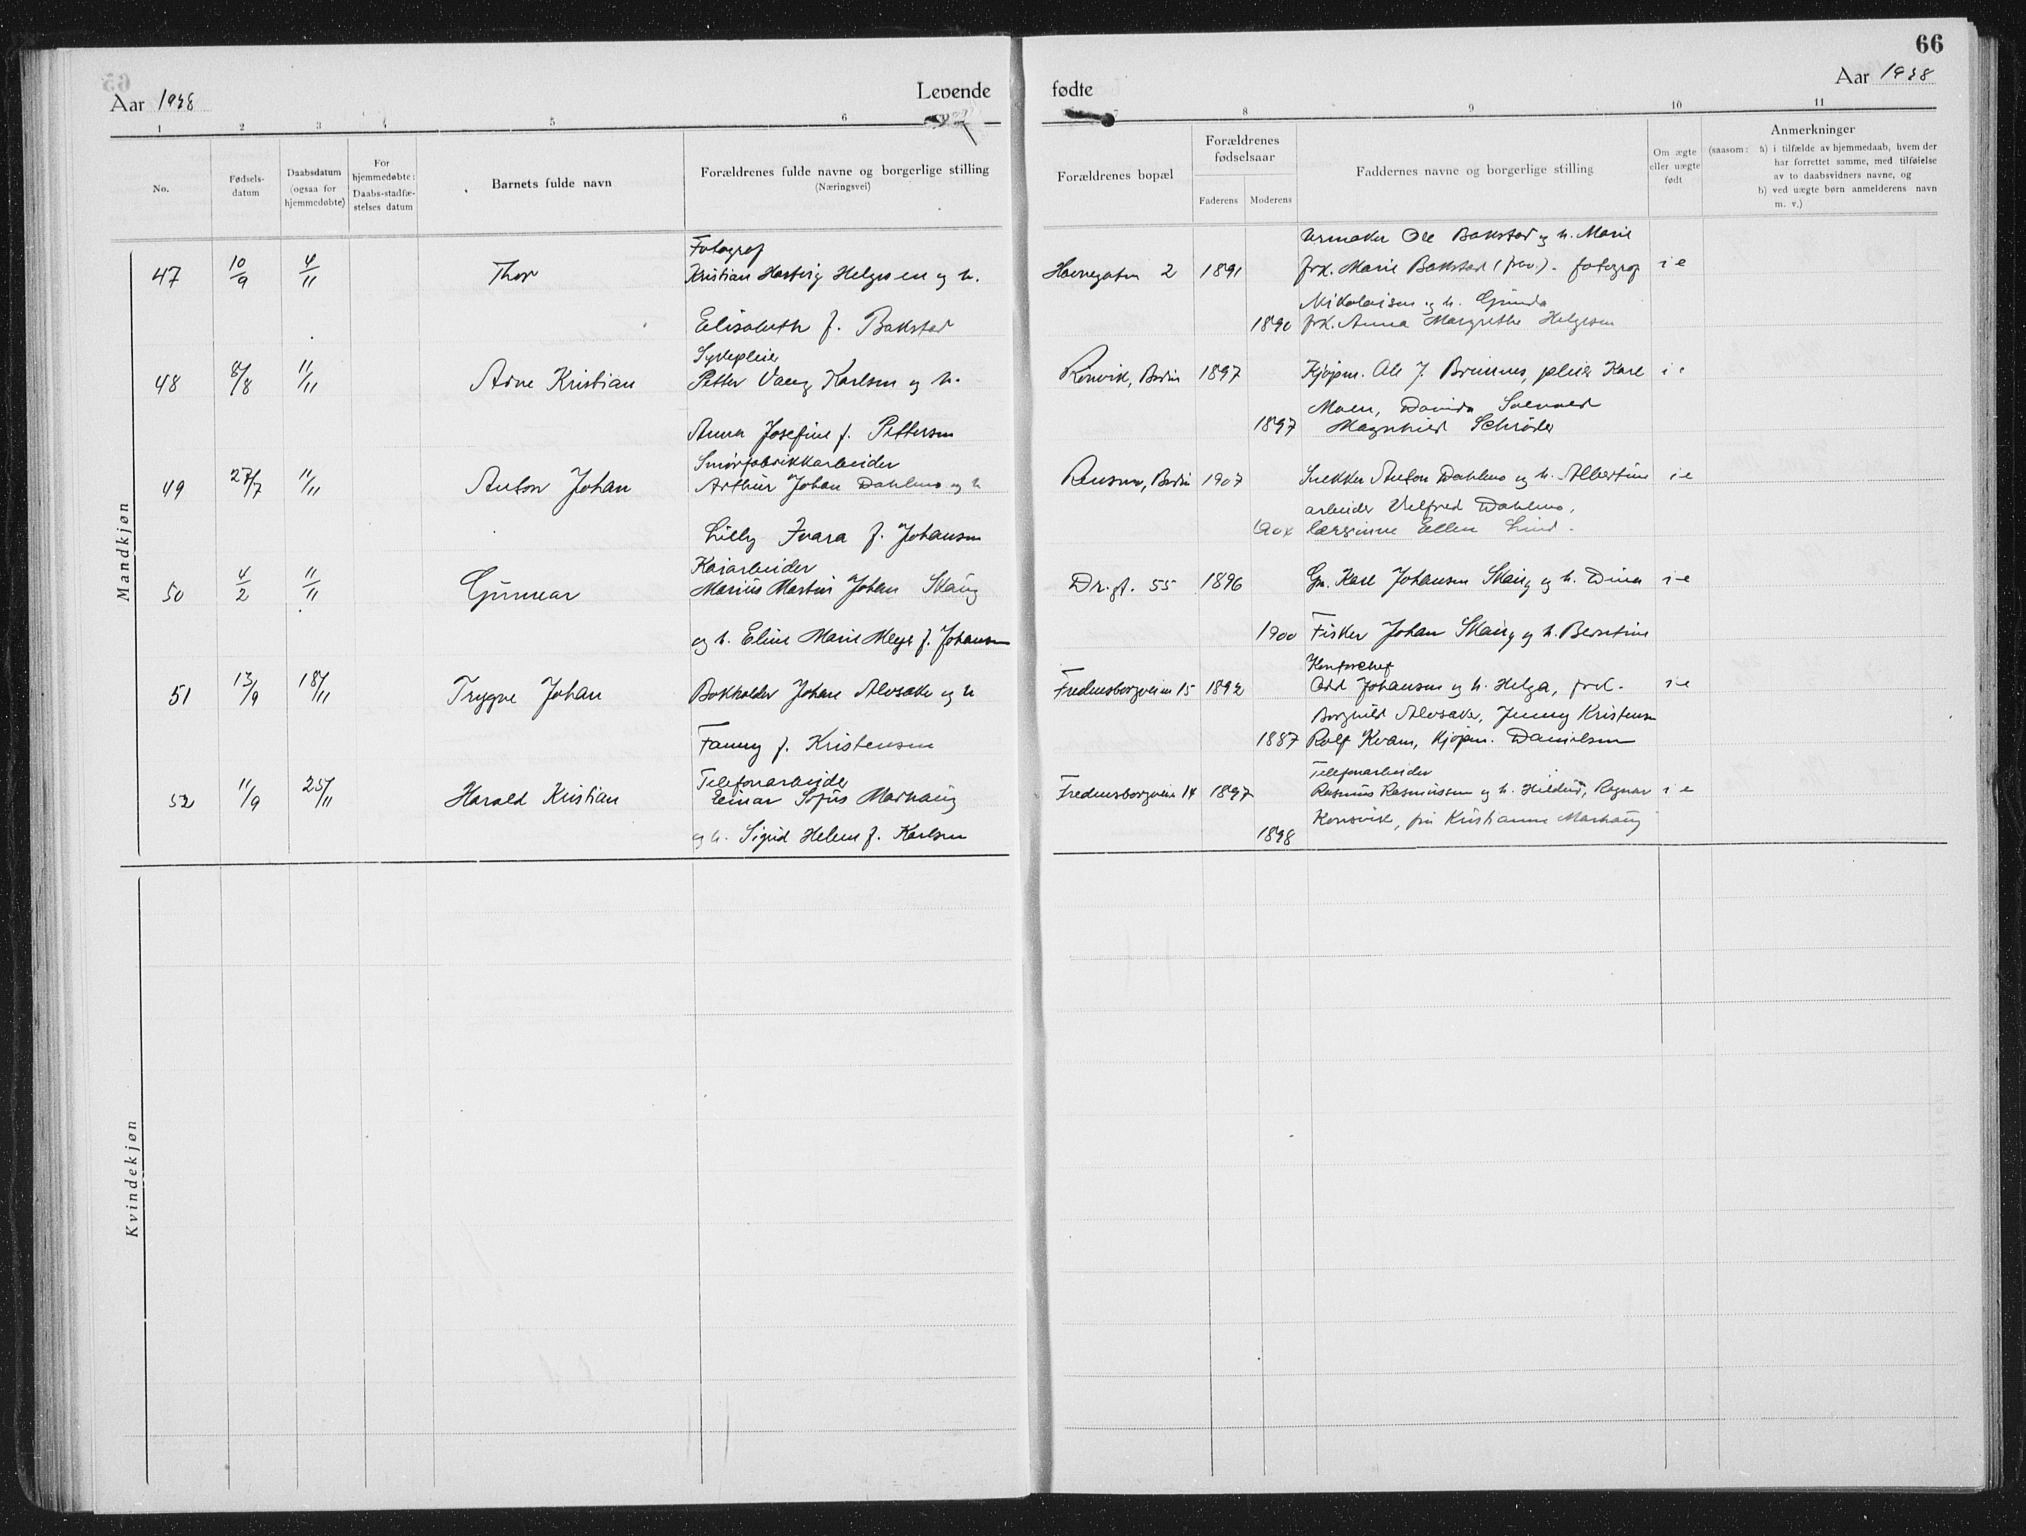 66
Aar 1938
Levende
fødte
Aar 1938
1 2 3 4 5 6
8 9 10 11
No.
Fødsels-
datum
Daabsdatum
(ogsaa for
hjemmedøbte)
For
hjemmedøbte:
Daabs-stadfæ-
stelses datum
Barnets fulde navn
Forældrenes fulde navne og borgerlige stilling
(Næringsvei)
Forældrenes bopæl
Forældrenes
fødselsaar
Faderens
Moderens
Faddernes navne og borgerlige stilling
Om ægte
eller uægte
født
Anmerkninger
(saasom: a) i tilfælde av hjemmedaab, hvem der
har forrettet samme, med tilføielse
av to daabsvidners navne, og
b) ved uægte børn anmelderens navn
m. v.)
Mandkjøn
47 10/9 4/11 Thor
Fotograf
Kristian Hartvig Helgesen og h.
Elisabeth f. Bakstad
Havnegaten 2 1891
1890
Urmaker Ole Bakstad og h. Marie
frk. Marie Bakstad (frav.) - fotograf
Nikolaisen og h. Gunda
frk. Anna Margrethe Helgesen
i e
48 8/8 11/11 Arne Kristian
Sykepleier
Petter Vang Karlsen og h.
Anna Josefine f. Pettersen
Rønvik, Bodin 1897
1897
Kjøpm. Ole J. Brunes, pleier Karl
Moen, Davida Solvold
Magnhild Schrøder
i e
49 27/7 11/11 Anton Johan
Smørfabrikkarbeider
Arthur Johan Dahlmo og h
Lilly Ivara f. Johansen
Bodin 1907
Snekker Anton Dahlmo og h. Albertine
arbeider Vilfred Dahlmo,
lærerinne Ellen Lind.
i e
50 4/2 11/11 Gunnar
Kaiarbeider
Marius Martin Johan Skaug
og h. Eline Marie Meyer f. Johansen
Dr.gt. 55 1896
1900
Gm. Karl Johansen Skaug og h. Dina
Fisker Johan Skaug og h. Berntine
i e
51 13/9 18/11 Trygve Johan
Bokholder Johan Alvsaker og h
Fanny f. Kristensen
Fredensborgveien 15 1892
1887
Kontorchef
Odd Johansen og h. Helga, frk.
Borghild Alvsaker, Jenny Kristensen
Rolf Kvam, kjøpm. Danielsen
i e
52 11/9 25/11 Harald Kristian
Telefonarbeider
Einar Sofus Marhaug
og h. Sigrid Helene f. Karlsen
Fredensborgveien 14 1897
1898
Telefonarbeider
Rasmus Rasmussen og h. Hildur, Ragnar
Korsvik, fru Kristianne Marhaug
i e
Kvindekjøn